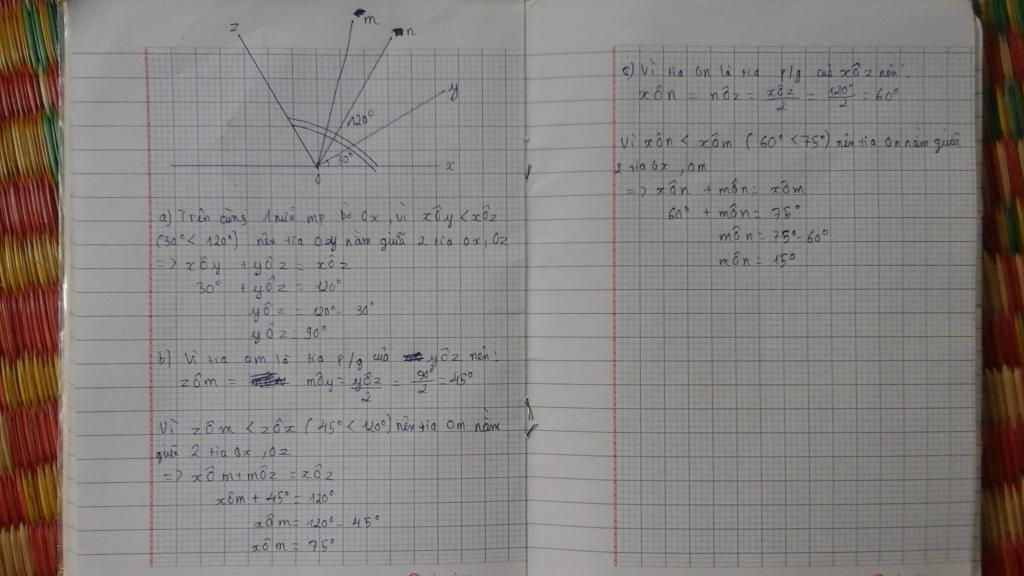 z
m
n
y
120°
30°
x
O
a) Trên cùng 1 nửa mp bờ Ox, vì xÔy < xÔz
(30° < 120°) nên tia Oxy nằm giữa 2 tia Ox, Oz
=> xÔy + yÔz = xÔz
30° + yÔz = 120°
yÔz = 120° - 30°
yÔz = 90°
b) Vì tia Om là tia p/g của yÔz nên:
zÔm = mÔy = yÔz/2 = 90°/2 = 45°
Vì zÔm < zÔx (45° < 120°) nên tia Om nằm
giữa 2 tia Ox, Oz
=> xÔm + mÔz = xÔz
xÔm + 45° = 120°
xÔm = 120° - 45°
xÔm = 75°
c) Vì tia On là tia p/g của xÔz nên:
xÔn = nÔz = xÔz/2 = 120°/2 = 60°
Vì xÔn < xÔm (60° < 75°) nên tia On nằm giữa
2 tia Ox, Om
=> xÔn + mÔn = xÔm
60° + mÔn = 75°
mÔn = 75° - 60°
mÔn = 15°